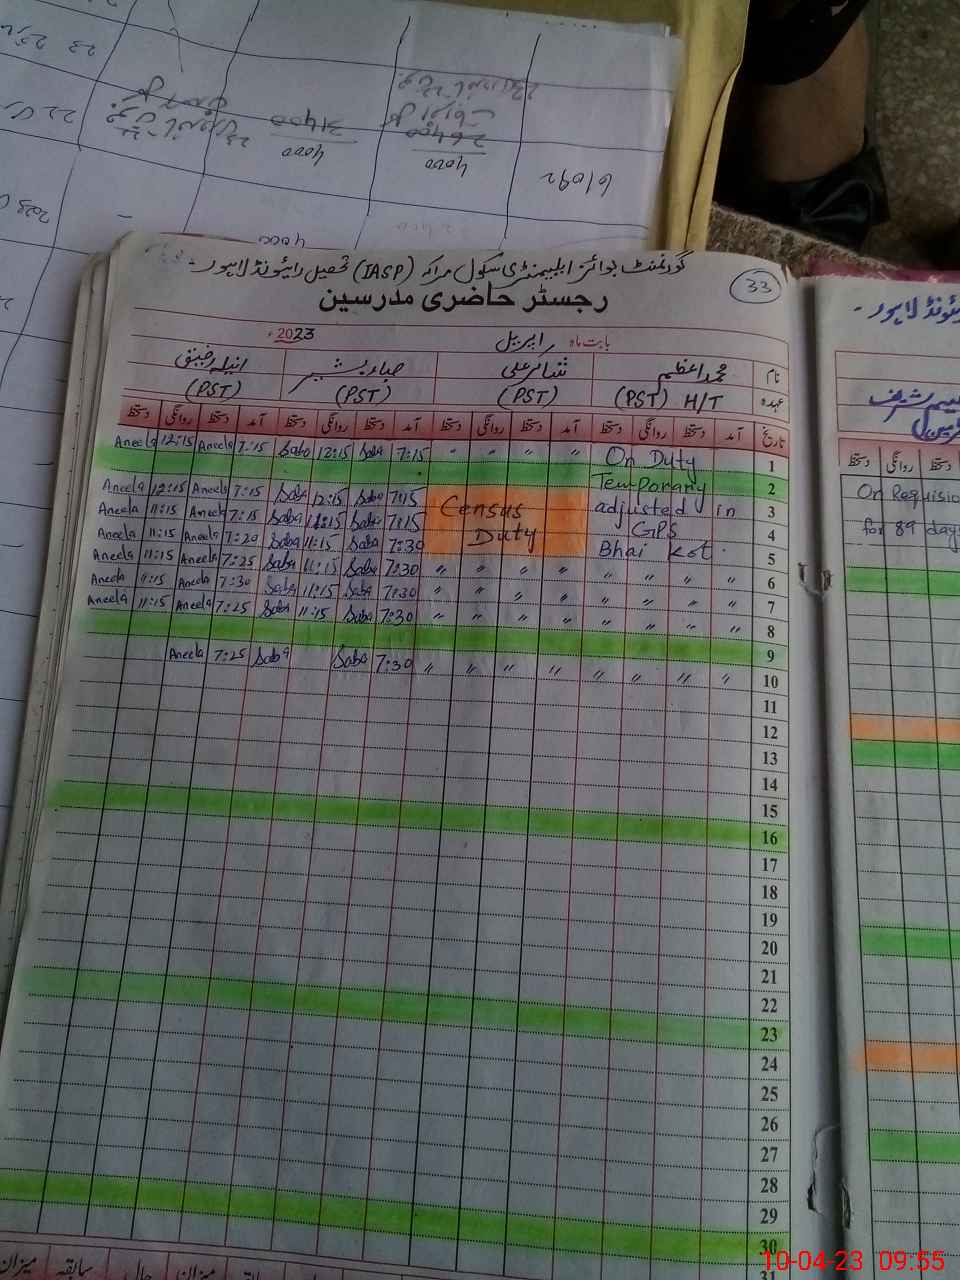 گورنمنٹ بوائز ایلیمنٹری سکول مراکہ (IASP) تحصیل رائیونڈ لاہور۔
33
رجسٹر حاضری مدرسین
بابت ماہ اپریل 2023ء
نام محمد اعظم شاکر علی صباء بشیر انیلہ رفیق
عہدہ H/T (PST) (PST) (PST) (PST)
تاریخ آمد دستخط روانگی دستخط آمد دستخط روانگی دستخط آمد دستخط روانگی دستخط آمد دستخط روانگی دستخط
Aneela 12:15 Aneela 7:15 Saba 12:15 Saba 7:15 " " " " On Duty 1
Temporary 2
Aneela 12:15 Aneela 7:15 Saba 12:15 Saba 7:15 Census adjusted in 3
Aneela 11:15 Aneela 7:15 Saba 11:15 Saba 7:15 Duty GPS 4
Aneela 11:15 Aneela 7:20 Saba 11:15 Saba 7:30 Bhai Kot. 5
Aneela 11:15 Aneela 7:25 Saba 11:15 Saba 7:30 " " " " " " " " 6
Aneela 11:15 Aneela 7:30 Saba 11:15 Saba 7:30 " " " " " " " " 7
Aneela 11:15 Aneela 7:25 Saba 11:15 Saba 7:30 " " " " " " " " 8
9
Aneela 7:25 Saba Saba 7:30 " " " " " " " " 10
11
12
13
14
15
16
17
18
19
20
21
22
23
24
25
26
27
28
29
30
31
میزان سابقہ حال میزان
رائیونڈ لاہور۔
دستخط روانگی دستخط
On Requisio
for 89 days
61092
4000
26400
4000
31400
4000
10-04-23 09:55